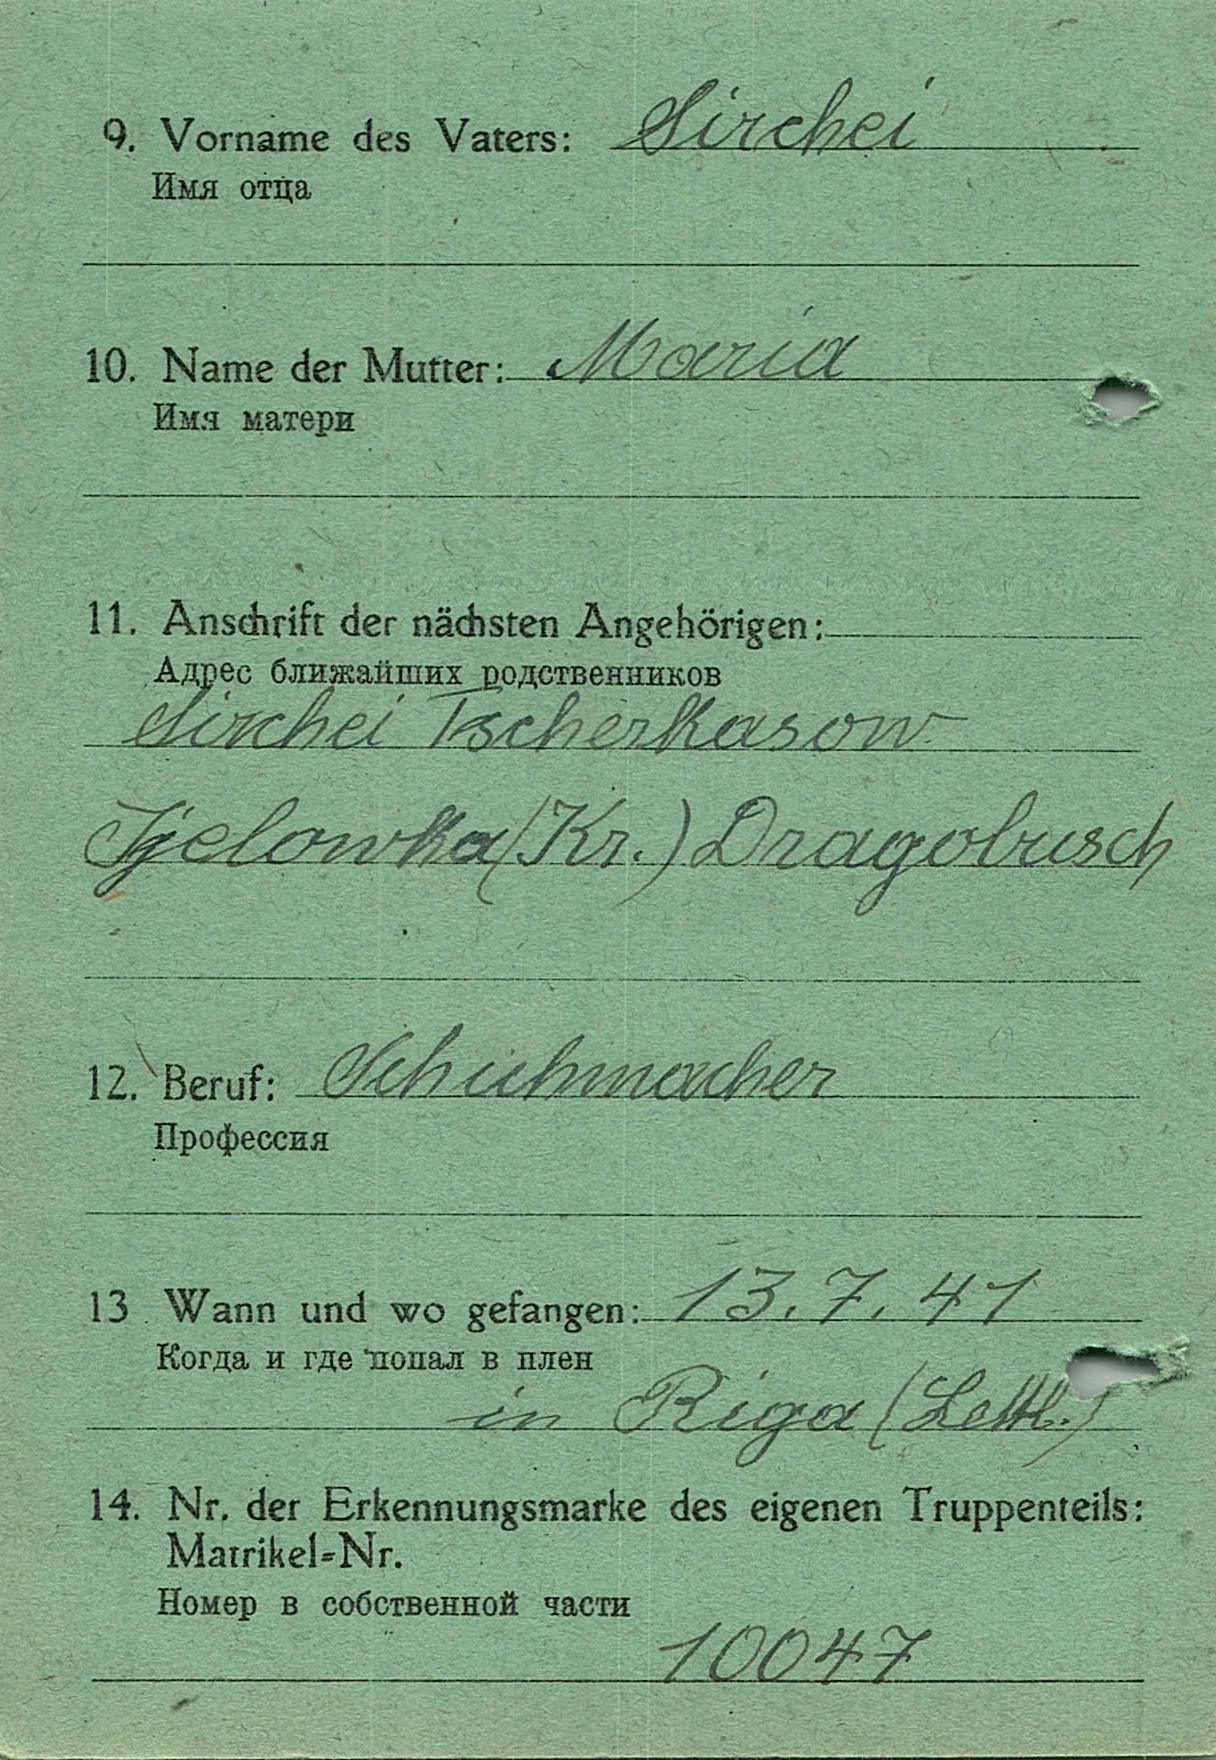 9. Vorname des Vaters: Sirchei
Имя отца
10. Name der Mutter: Maria
Имя матери
11. Anschrift der nächsten Angehörigen:
Адрес ближайших родственников
Sirchei Tscherkasow
(Kr.) Dragobusch
12. Beruf: Schuhmacher
Профессия
13 Wann und wo gefangen: 13.7.41
Когда и где попал в плен
in Riga (Lettl.)
14. Nr. der Erkennungsmarke des eigenen Truppenteils:
Matrikel-Nr.
Номер в собственной части
10047